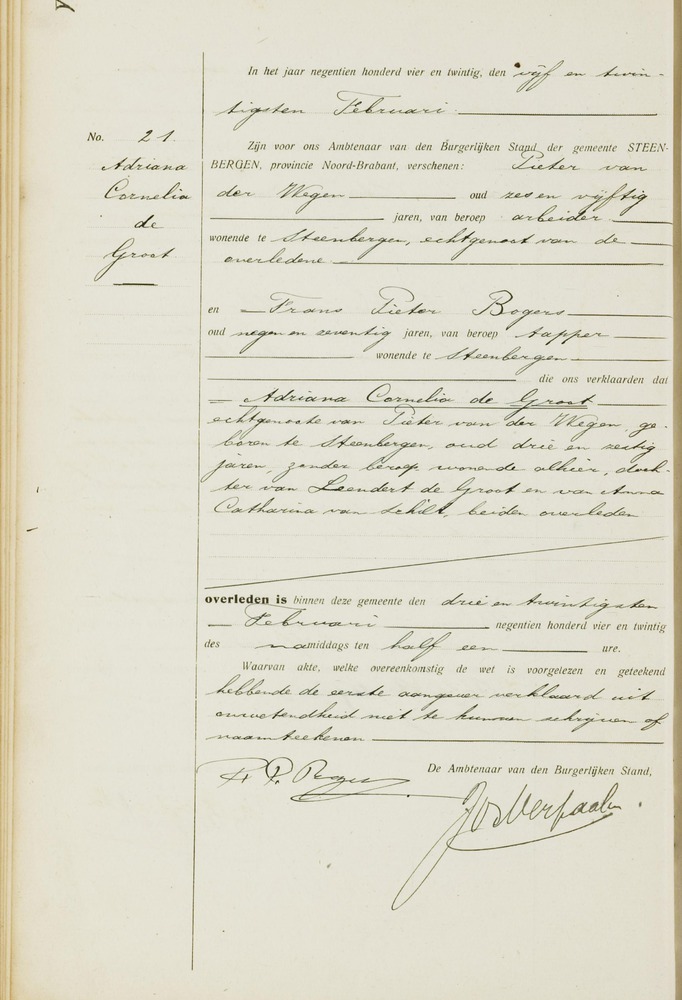 No. 21.
Adriana
Cornelia
de
Groot
In het jaar negentien honderd vier en twintig, den vijf en twin-
tigsten Februari
Zijn voor ons Ambtenaar van den Burgerlijken Stand der gemeente STEEN-
BERGEN, provincie Noord-Brabant, verschenen: Pieter van
der Wegen oud zes en vijftig
jaren, van beroep arbeider
wonende te Steenbergen, echtgenoot van de
overledene
en Frans Pieter Bogers
oud negen en zeventig jaren, van beroep tapper
wonende te Steenbergen
die ons verklaarden dat
Adriana Cornelia de Groot
echtgenoote van Pieter van der Wegen, ge-
boren te Steenbergen, oud drie en zestig
jaren, zonder beroep, wonende alhier, doch-
ter van Leendert de Groot en van Anna
Catharina van Schilt, beiden overleden
overleden is binnen deze gemeente den drie en twintigsten
Februari negentien honderd vier en twintig
des namiddags ten half een ure.
Waarvan akte, welke overeenkomstig de wet is voorgelezen en geteekend
hebbende de eerste aangever verklaard uit
onwetendheid niet te kunnen schrijven of
naamteekenen
De Ambtenaar van den Burgerlijken Stand,